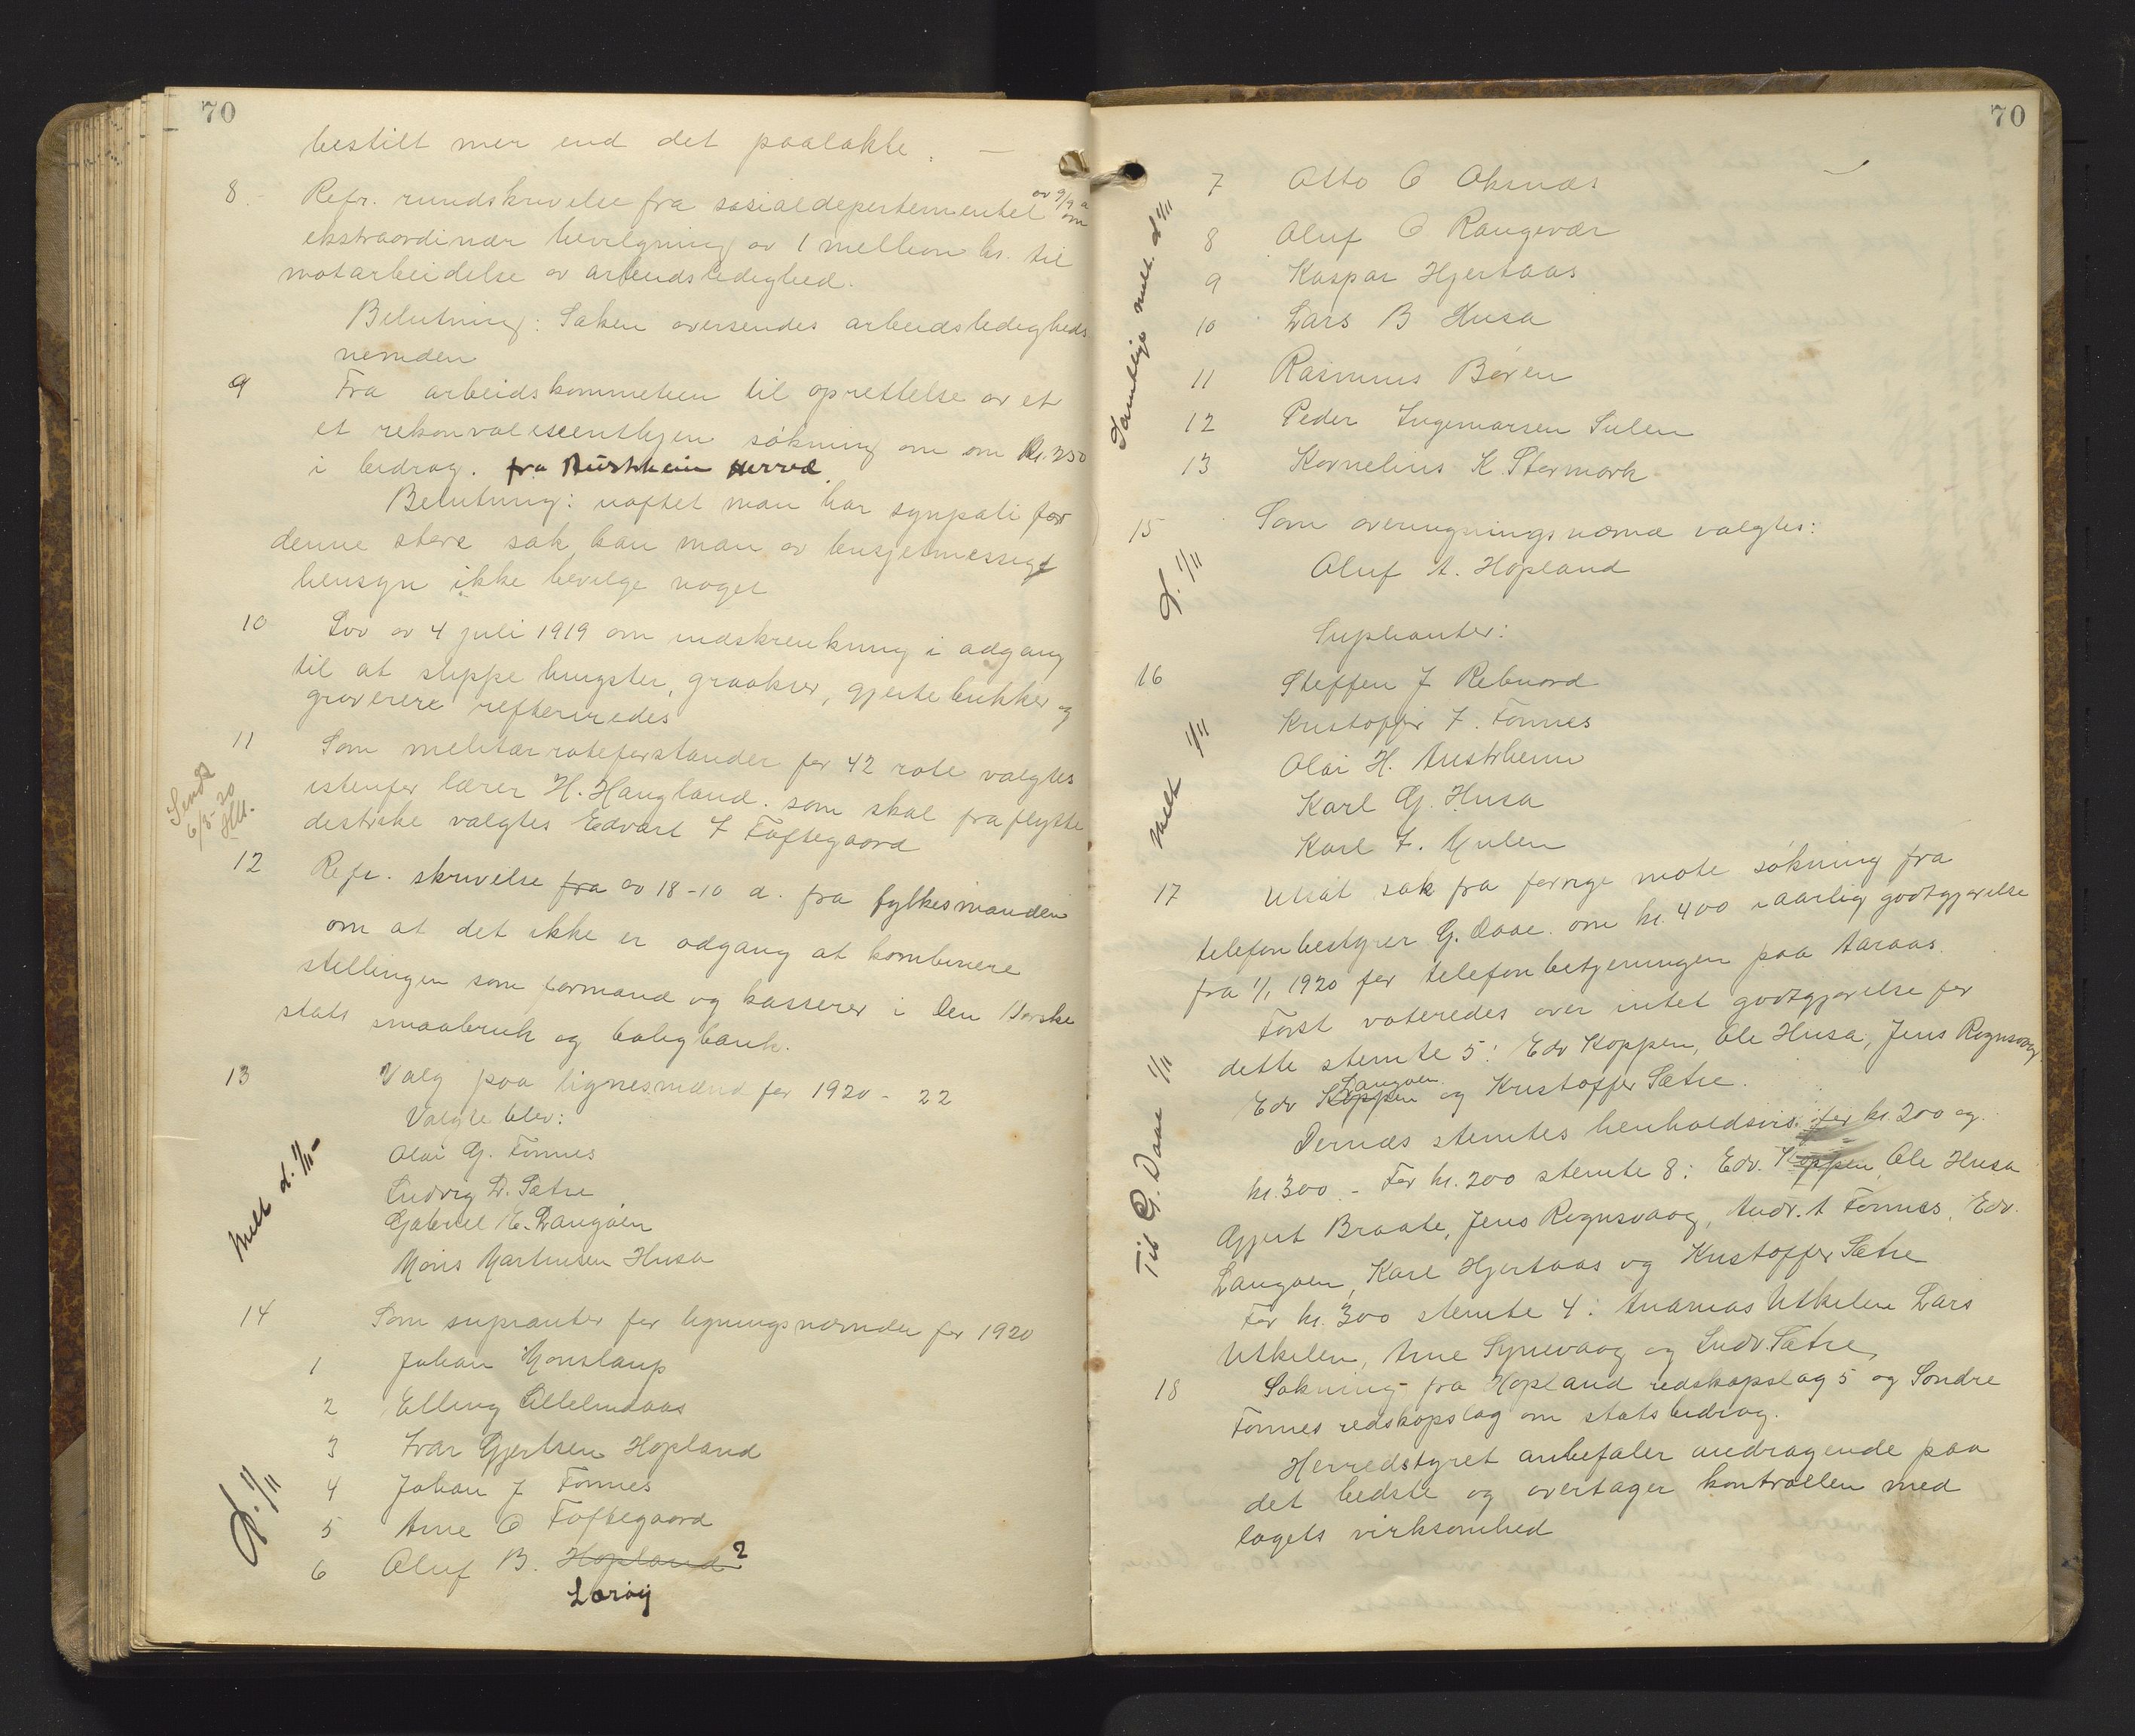 70
bestilt mer end det paalakte. —
8. Refr. rundskrivelse fra sosialdepertementet av 9/9 a om
ekstraordinær bevilgning av 1 mellion kr. til
motarbeidelse av arbeidsledighed.
Belutning: Saken oversendes arbeidsledigheds
nemnden
9 Fra arbeidskommeteen til oprettelse av et
et rekonvalescenthjem søkning om om Kr. 250
i bidrag. fra Austrheim Herred.
Belutning: uaftet man har sympati for
denne store sak, kan man av busjetmessige
hensyn ikke bevilge noget
10 Lov av 4 juli 1919 om indskrenkning i adgang
til at sleppe hingster, graakser, gjeitebukker og
graverere refterredes
11 Som militær roteforstander for 42 rote valgtes
istenfor lærer H. Haugland. som skal fraflytte
destrike valgtes Edvart F Toftegaard
Sendt
6/3-20
12 Refr. skrivelse fra av 18-10 a. fra fylkesmanden
om at det ikke er adgang at kombinere
stellingen som formand og kasserer i Den Norske
stats smaabruk og boligbank.
13 Valg paa lignesmænd for 1920 - 22
Valgte blev:
Olai G. Fonnes
Ludvig D. Sætre
Gabriel E. Langøen
Mons Martinsen Husa
Melt d. 1/11 -
14 Som suplanter for ligningsnemnden for 1920
1 Johan Monslaup
2 Elling Lillelindaas
3 Ivar Gjertsen Hopland
4 Johan J Fonnes
5 Arne O Toftegaard
6 Oluf B. Hopland ?
Lerøy
d. 1/11
70
Samtlige melt. d 1/11
7 Otto O Oksnæs
8 Oluf O Rangevær
9 Kaspar Hjertaas
10 Lars B Husa
11 Rasmus Børen
12 Peder Ingemarsen Sulen
13 Kornelius K. Stormark
15 Som overligningsnæmd valgtes:
Oluf A. Hopland
d. 1/11
Suplianter:
16 Steffen J Rebnord
Kristoffer F. Fonnes
Olai H. Austrheim
Karl G. Husa
Karl F. Mulen
Melt 1/11
17 Utsat sak fra forrige møte søkning fra
telefonbestyrer G. Daae. om kr. 400 i aarlig godtgjørelse
fra 1/1 1920 for telefonbetjeningen paa Aaraas.
Først voteredes over intet godtgjørelse for
dette stemte 5: Edv Koppen, Ole Husa, Jens Rognsvaag
Edv Koppen Langøen og Kristoffer Sætre.
Dernæs stemtes henholdsvis for kr. 200 og
kr. 300. - For kr. 200 stemte 8: Edv. Koppen, Ole Husa
Gjert Braate, Jens Rognsvaag, Andr. A Fonnes, Edv.
Langøen, Karl Hjertaas og Kristoffer Sætre
For kr. 300 stemte 4: Andreas Utkilen Lars
Utkilen, Arne Synnevaag og Ludv. Sætre,
Til G. Daae 1/11
18 Søkning fra Hopland redskapslag 5 og Søndre
Fonnes redskapslag om statsbidrag.
Herredstyret anbefaler andragende paa
det bedste og overtager kontrollen med
lagets virksomhed